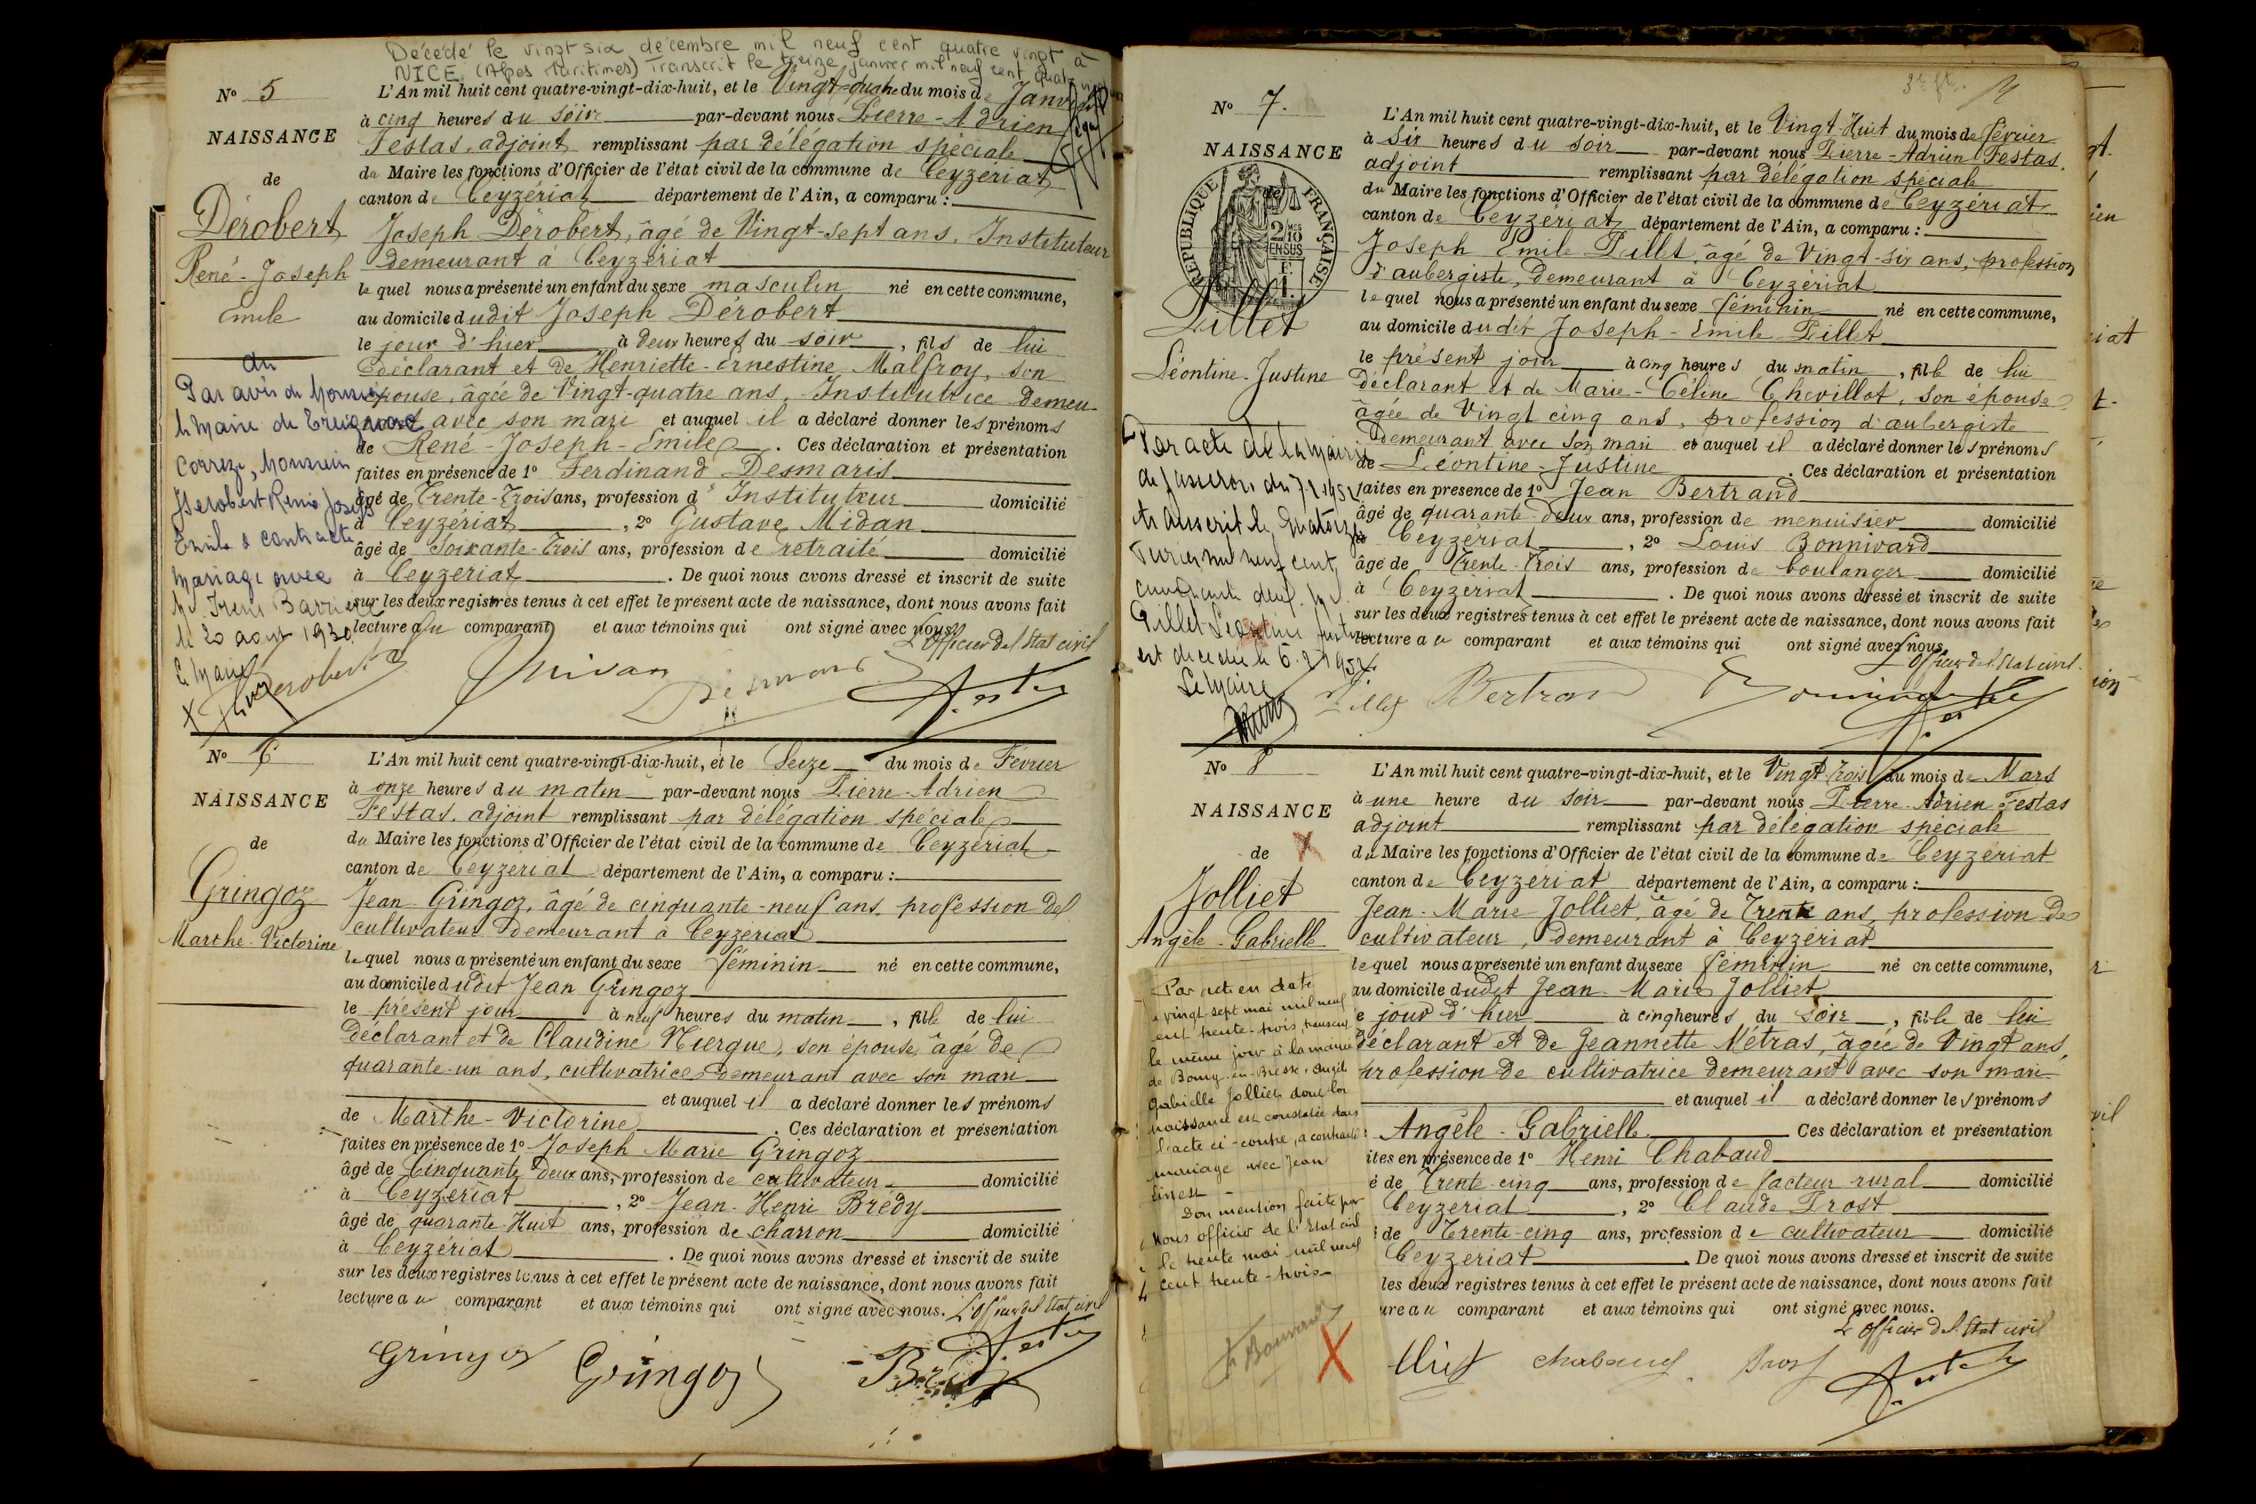 Décédé le vingt six décembre mil neuf cent quatre vingt à
NICE (Alpes Maritimes) Transcrit le treize janvier mil neuf cent quatre vingt
N° 5
NAISSANCE
de
Dérobert
René-Joseph
Emile
du
Par avis de Monsieur
le Maire de Treignac
Corrèze, Monsieur
Derobert René Joseph
Emile a contracté
mariage avec
Irène
le 20 août 1930
le Maire
L'An mil huit cent quatre-vingt-dix-huit, et le Vingt-quatre du mois de Janvier
à cinq heures du soir par-devant nous Pierre-Adrien
Festas, adjoint remplissant par délégation spéciale
du Maire les fonctions d'Officier de l'état civil de la commune de Ceyzériat
canton de Ceyzériat département de l'Ain, a comparu :
Joseph Dérobert, âgé de Vingt-sept ans, Instituteur
demeurant à Ceyzériat
lequel nous a présenté un enfant du sexe masculin né en cette commune,
au domicile dudit Joseph Dérobert
le jour d'hier à deux heures du soir, fils de lui
déclarant et de Henriette-Ernestine Malfroy, son
épouse, âgée de Vingt-quatre ans, Institutrice demeu-
rant avec son mari et auquel il a déclaré donner les prénoms
de René-Joseph-Emile. Ces déclaration et présentation
faites en présence de 1° Ferdinand Desmaris
âgé de Trente-Trois ans, profession d'Instituteur domicilié
à Ceyzériat, 2° Gustave Midan
âgé de Soixante-Trois ans, profession de retraité domicilié
à Ceyzériat. De quoi nous avons dressé et inscrit de suite
sur les deux registres tenus à cet effet le présent acte de naissance, dont nous avons fait
lecture au comparant et aux témoins qui ont signé avec nous.
L'Officier de l'Etat civil
Derobert
N° 6
NAISSANCE
de
Gringoz
Marthe-Victorine
L'An mil huit cent quatre-vingt-dix-huit, et le Seize du mois de Février
à onze heures du matin par-devant nous Pierre-Adrien
Festas, adjoint remplissant par délégation spéciale
du Maire les fonctions d'Officier de l'état civil de la commune de Ceyzériat
canton de Ceyzériat département de l'Ain, a comparu :
Jean Gringoz, âgé de cinquante-neuf ans, profession de
cultivateur demeurant à Ceyzériat
lequel nous a présenté un enfant du sexe féminin né en cette commune,
au domicile dudit Jean Gringoz
le présent jour à neuf heures du matin, fille de lui
déclarant et de Claudine Nierque, son épouse, âgé de
quarante-un ans, cultivatrice demeurant avec son mari
et auquel il a déclaré donner les prénoms
de Marthe-Victorine. Ces déclaration et présentation
faites en présence de 1° Joseph Marie Gringoz
âgé de Cinquante Deux ans, profession de cultivateur domicilié
à Ceyzériat, 2° Jean-Henri Brédy
âgé de quarante Huit ans, profession de charron domicilié
à Ceyzériat. De quoi nous avons dressé et inscrit de suite
sur les deux registres tenus à cet effet le présent acte de naissance, dont nous avons fait
lecture au comparant et aux témoins qui ont signé avec nous.
L'Officier de l'Etat civil
Gringoz Gringoz
N° 7.
NAISSANCE
de
RÉPUBLIQUE FRANÇAISE
Pillet
Léontine-Justine
Par acte de la Mairie
de Jasseron du
transcrit le quatorze
mil neuf cent
cinquante deux
Pillet Léontine Justine
est décédée le
Le Maire
L'An mil huit cent quatre-vingt-dix-huit, et le Vingt-Huit du mois de février
à six heures du soir par-devant nous Pierre-Adrien Festas,
adjoint remplissant par délégation spéciale
du Maire les fonctions d'Officier de l'état civil de la commune de Ceyzériat
canton de Ceyzériat département de l'Ain, a comparu :
Joseph Emile Pillet, âgé de Vingt-six ans, profession
d'aubergiste, demeurant à Ceyzériat
lequel nous a présenté un enfant du sexe féminin né en cette commune,
au domicile dudit Joseph-Emile Pillet
le présent jour à cinq heures du matin, fille de lui
déclarant et de Marie-Céline Chevillot, son épouse
âgée de Vingt cinq ans, profession d'aubergiste
demeurant avec son mari et auquel il a déclaré donner les prénoms
de Léontine-Justine. Ces déclaration et présentation
faites en présence de 1° Jean Bertrand
âgé de quarante-deux ans, profession de menuisier domicilié
à Ceyzériat, 2° Louis Bonnivard
âgé de Trente-Trois ans, profession de boulanger domicilié
à Ceyzériat. De quoi nous avons dressé et inscrit de suite
sur les deux registres tenus à cet effet le présent acte de naissance, dont nous avons fait
lecture au comparant et aux témoins qui ont signé avec nous.
L'Officier de l'Etat civil.
Pillet Bertrand
N° 8
NAISSANCE
de
Jolliet
Angèle-Gabrielle
Par acte en date
vingt-sept mai mil neuf
cent trente-trois, transcrit
le même jour à la mairie
de Bourg-en-Bresse, Angèle
Gabrielle Jolliet dont la
naissance est constatée dans
l'acte ci-contre, a contracté
mariage avec Jean
Don mention faite par
Nous officier de l'Etat civil
le trente mai mil neuf
cent trente-trois
L'An mil huit cent quatre-vingt-dix-huit, et le Vingt Trois du mois de Mars
à une heure du soir par-devant nous Pierre-Adrien Festas
adjoint remplissant par délégation spéciale
du Maire les fonctions d'Officier de l'état civil de la commune de Ceyzériat
canton de Ceyzériat département de l'Ain, a comparu :
Jean-Marie Jolliet, âgé de Trente ans, profession de
cultivateur, demeurant à Ceyzériat
lequel nous a présenté un enfant du sexe féminin né en cette commune,
au domicile dudit Jean-Marie Jolliet
e jour d'hier à cinq heures du soir, fille de lui
déclarant et de Jeannette Métras, âgée de Vingt ans,
profession de cultivatrice demeurant avec son mari
et auquel il a déclaré donner les prénoms
Angèle-Gabrielle Ces déclaration et présentation
ites en présence de 1° Henri Chabaud
é de Trente-cinq ans, profession de facteur rural domicilié
Ceyzériat, 2° Claude Prost
de Trente-cinq ans, profession de cultivateur domicilié
Ceyzériat. De quoi nous avons dressé et inscrit de suite
les deux registres tenus à cet effet le présent acte de naissance, dont nous avons fait
ure au comparant et aux témoins qui ont signé avec nous.
L'Officier de l'Etat civil
Chabaud Prost